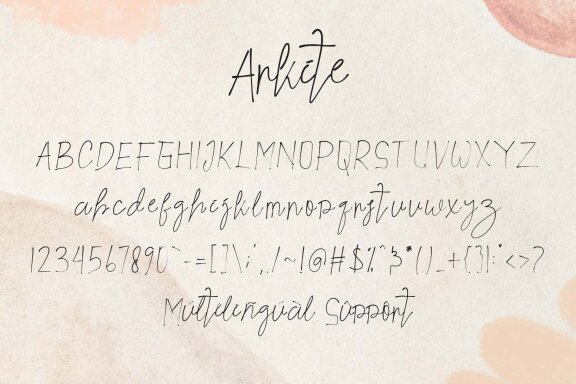 Arkite
ABCDEFGHIJKLMNOPQRSTUVWXYZ
abcdefghijklmnopqrstuvwxyz
1234567890`-=[]\;',./~!@#$%^&*()_+{}|:"<>?
Múltilingüàl Sûppört